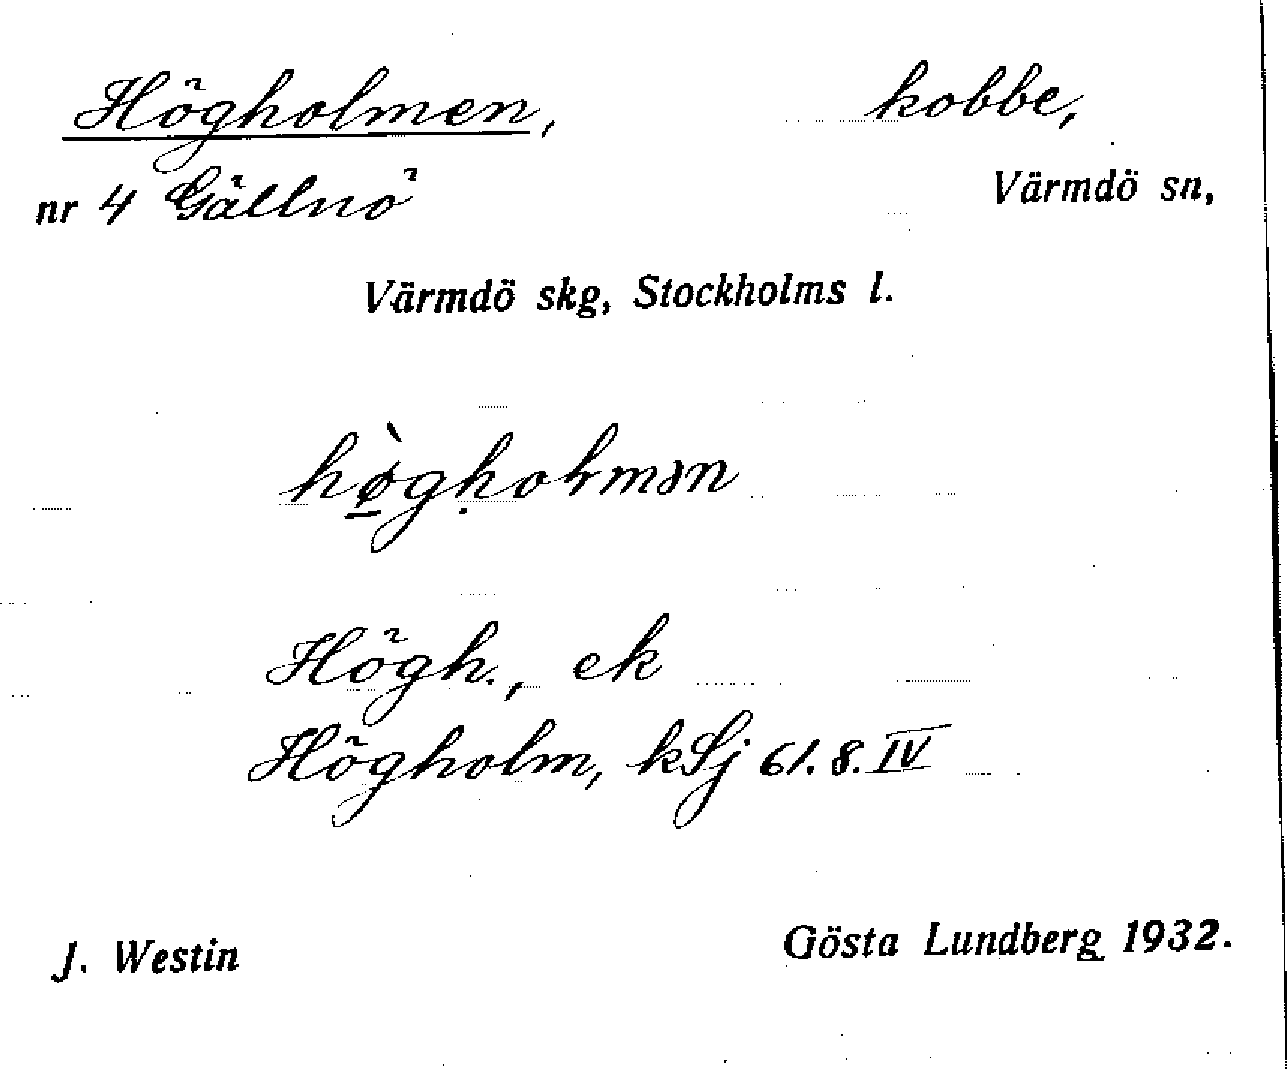 Högholmen, kobbe,
nr 4 Gällnö Värmdö sn,
Värmdö skg, Stockholms l.
hø̲̀gḥoƚmən
Högh., ek
Högholm, kSj 61.8.IV
J. Westin Gösta Lundberg 1932.